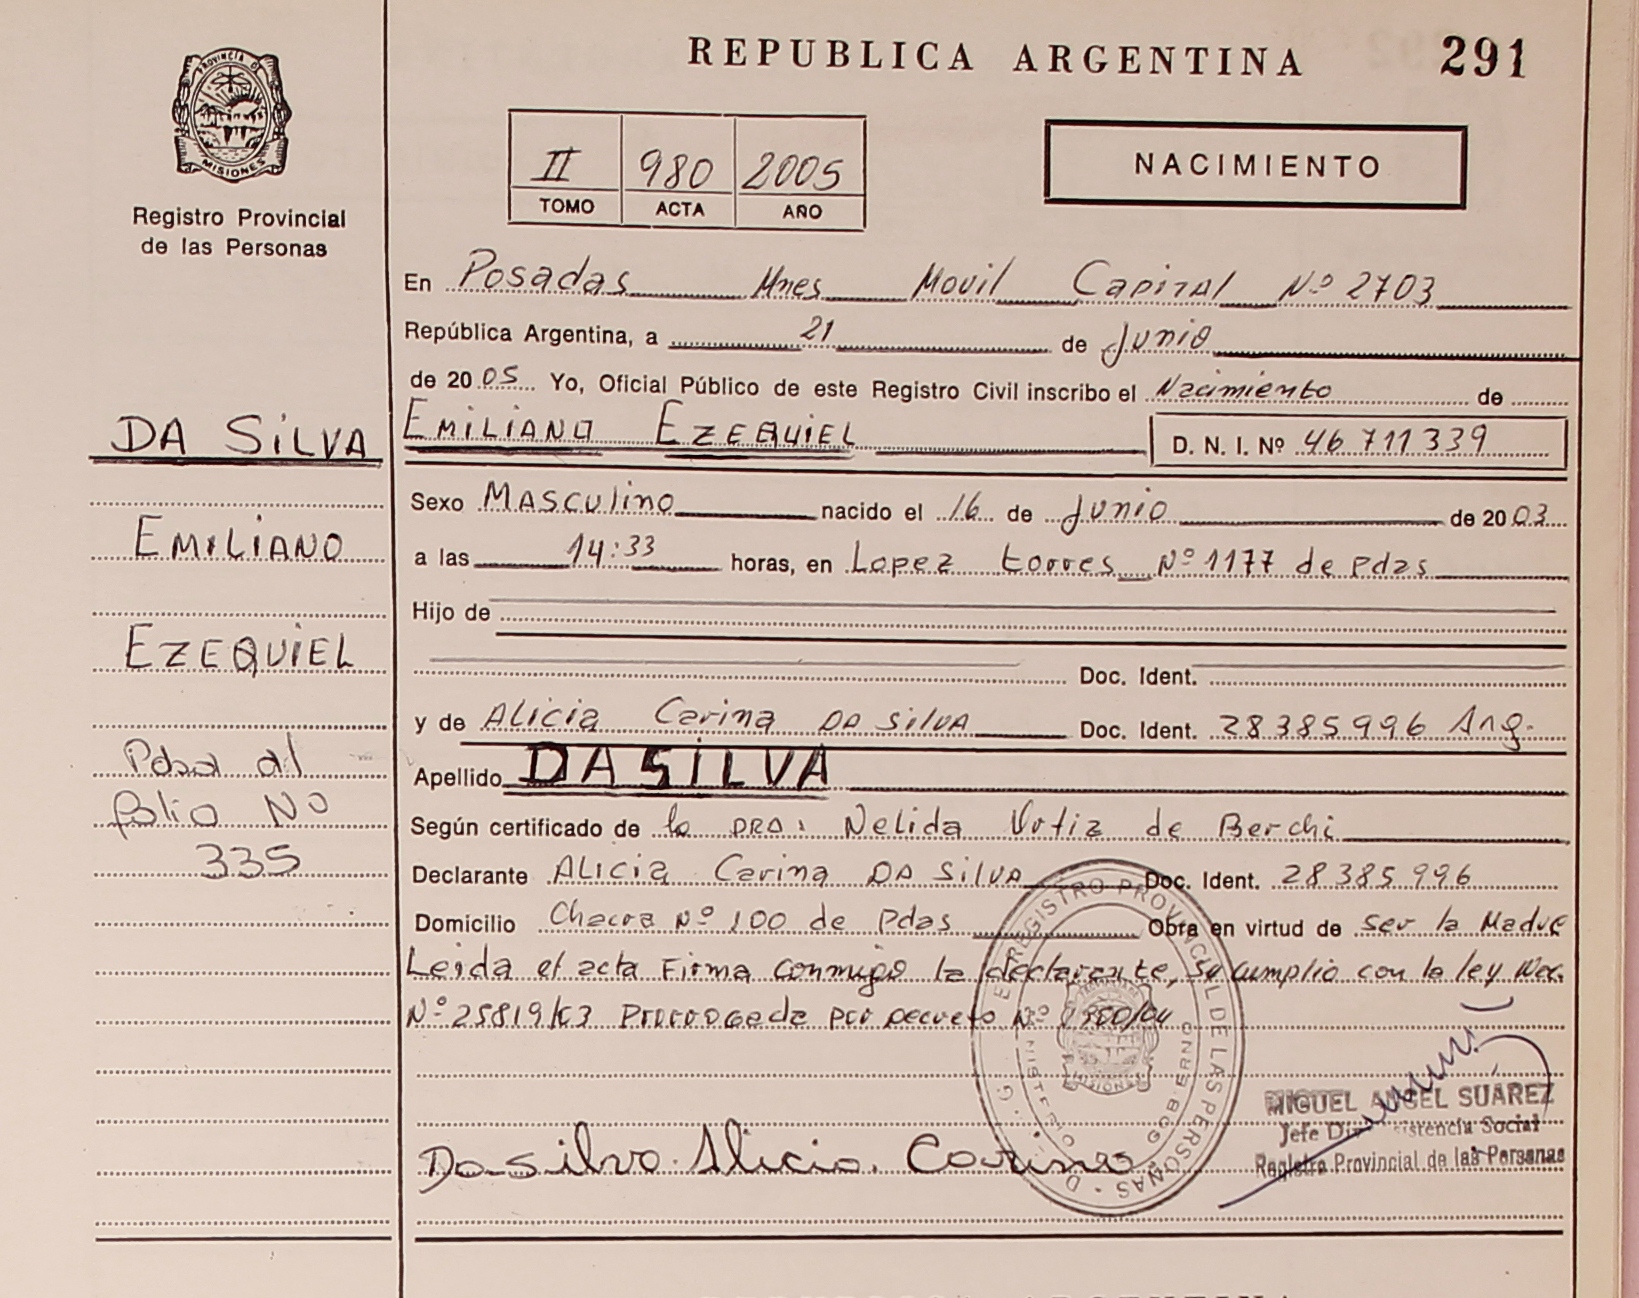 REPUBLICA ARGENTINA 291
PROVINCIA DE
MISIONES
Registro Provincial
de las Personas
II 980 2005
TOMO ACTA AÑO
NACIMIENTO
En Posadas Mnes Movil Capital Nº 2703
República Argentina, a 21 de Junio
de 2005 Yo, Oficial Público de este Registro Civil inscribo el Nacimiento de
DA SILVA
EMILIANO EZEQUIEL D. N. I. Nº 46 711 339
Sexo Masculino nacido el 16 de Junio de 2003
EMILIANO
a las 14:33 horas, en Lopez torres Nº 1177 de pdas
Hijo de
EZEQUIEL
Doc. Ident.
y de Alicia Carina DA SILVA Doc. Ident. 28385996 Arg.
Pasa al
folio Nº
335
Apellido DA SILVA
Según certificado de la DRA: Nelida Vrtiz de Berchi
Declarante Alicia Carina DA SILVA Doc. Ident. 28385996
Domicilio Chacra Nº 100 de pdas Obra en virtud de ser la Madre
Leida el acta Firma conmigo la declarante, se cumplio con la ley Nac.
Nº 25819/03 Prorrogada por Decreto Nº
REGISTRO PROVINCIAL DE LAS PERSONAS
MINISTERIO GOBIERNO
MISIONES
MIGUEL ANGEL SUAREZ
Jefe Asistencia Social
Registro Provincial de las Personas
Da silva Alicia Carina